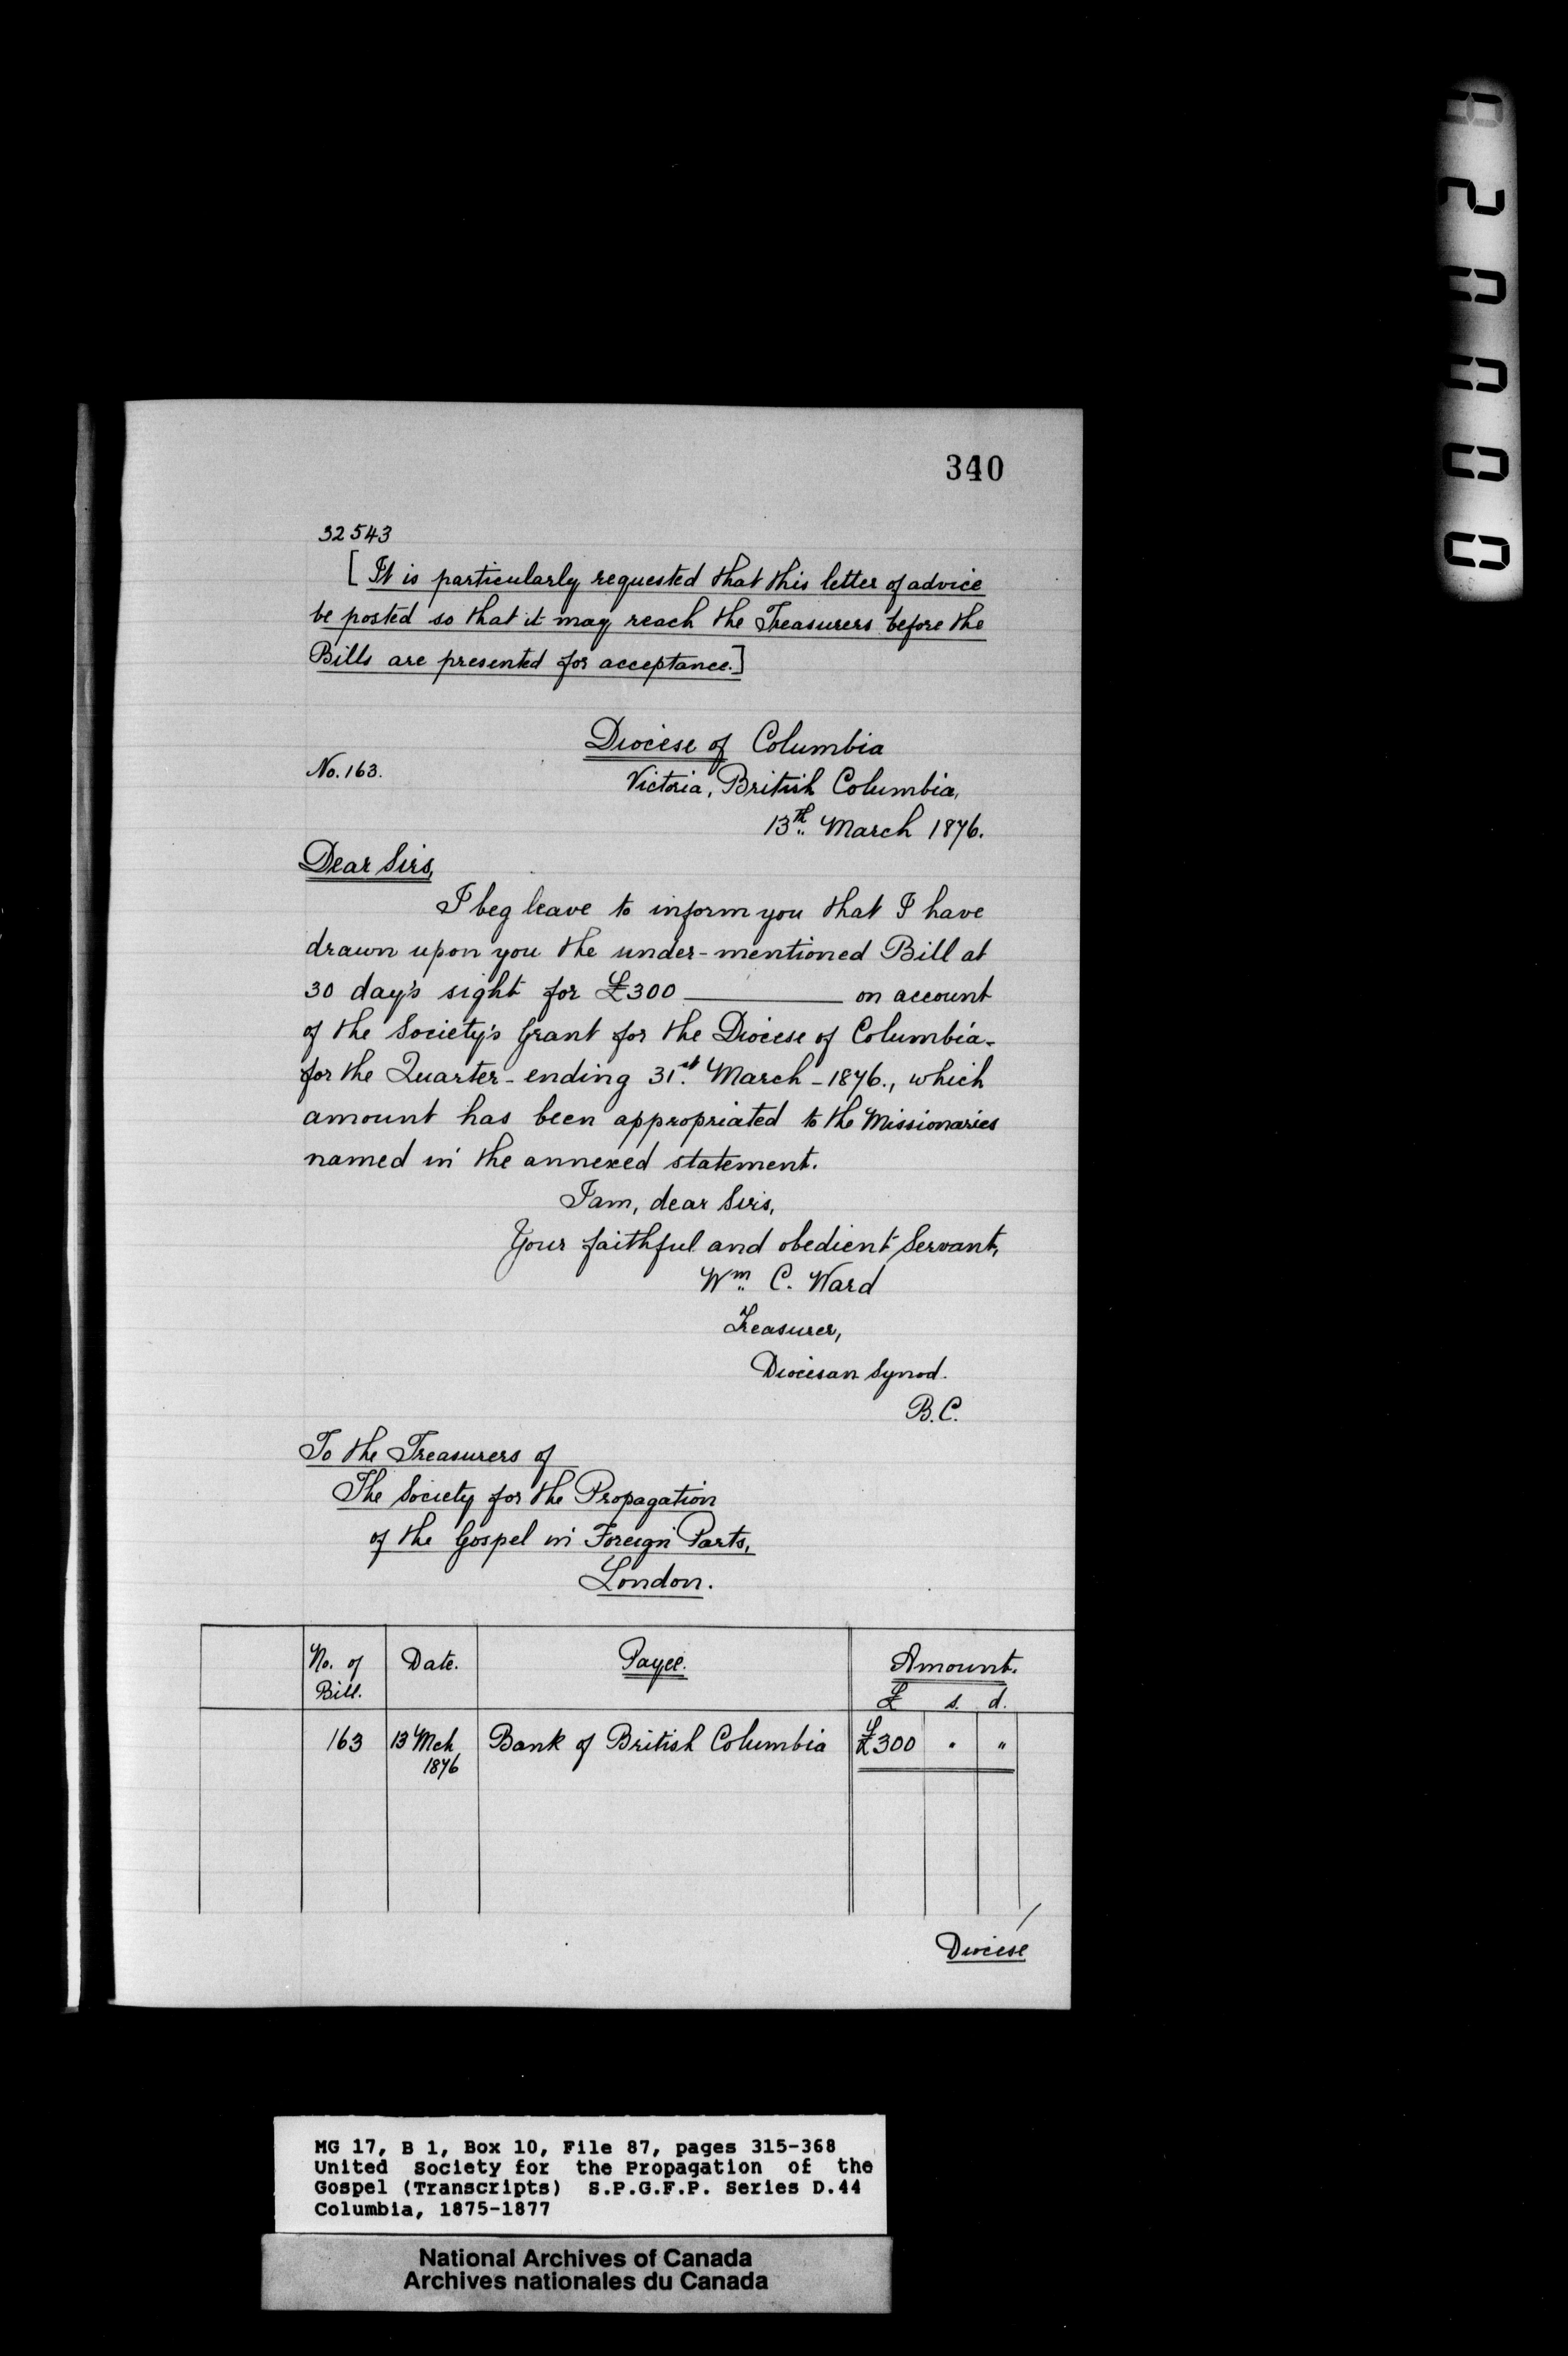 340
32543
[It is particularly requested that this letter of advice
be posted so that it may reach the Treasurers before the
Bills are presented for acceptance.]
Diocese of Columbia
No. 163.
Victoria, British Columbia,
13th March 1876.
Dear Sirs,
I beg leave to inform you that I have
drawn upon you the under-mentioned Bill at
30 day's sight for £300 ———— on account
of the Society's Grant for the Diocese of Columbia-
for the Quarter-ending 31st March-1876., which
amount has been appropriated to the Missionaries
named in the annexed statement.
I am, dear Sirs,
Your faithful and obedient Servant,
Wm C. Ward
Treasurer,
Diocesan Synod.
B.C.
To the Treasurers of
The Society for the Propagation
of the Gospel in Foreign Parts,
London.
No. of Bill. Date. Payee. Amount.
£ s. d.
163 13 Mch 1876 Bank of British Columbia £300 " "
Diocese
MG 17, B 1, Box 10, File 87, pages 315-368
United Society for the Propagation of the
Gospel (Transcripts) S.P.G.F.P. Series D.44
Columbia, 1875-1877
National Archives of Canada
Archives nationales du Canada